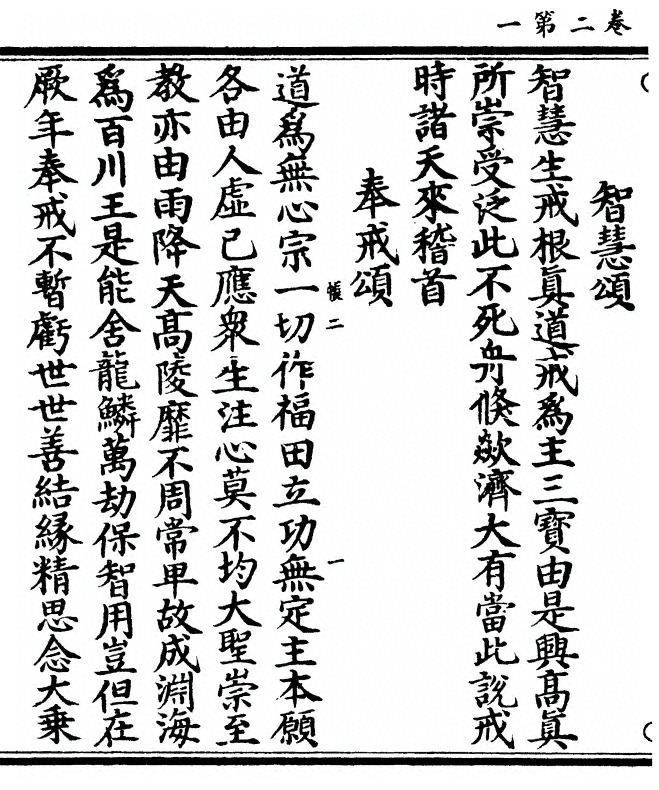 卷二第一
智慧頌
智慧生戒根眞道戒爲主三寶由是興高眞
所崇受泛此不死舟倐歘濟大有當此說戒
時諸天來稽首
奉戒頌
道爲無心宗一切作福田立功無定主本願
各由人虛己應衆生注心莫不均大聖崇至
教亦由雨降天高陵靡不周常卑故成淵海
爲百川王是能舍龍鱗萬劫保智用豈但在
厥年奉戒不暫虧世世善結緣精思念大乗
帳二
一